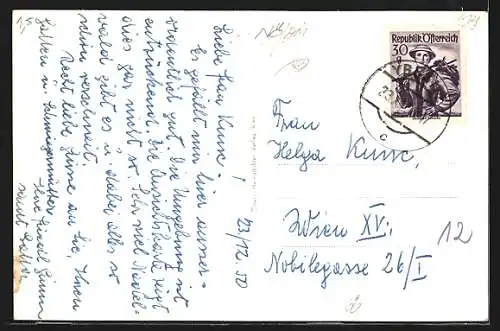 23/12.50
Liebe Frau Kunc!
Es gefällt mir hier ausser-
ordentlich gut. Die Umgebung ist
entzückend. Die Ansichtskarte zeigt
dies gar nicht so. Sehr viel Nadel-
wald gibt es u. dabei alles so
schön verschneit.
Recht liebe Grüsse an Sie, Ihren
Gatten u. Schwiegermutter
Ihre
samt
Republik Österreich
30 g
YB
Frau
Helga Kunc,
Wien XV.
Nobilegasse 26/I
12